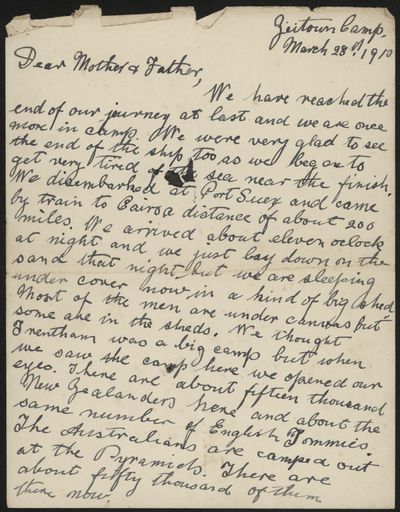 Zeitown Camp.
March 28th, 1910
Dear Mother & Father,
We have reached the
end of our journey at last and we are once
more in camp. We were very glad to see
the end of the ship too as we began to
get very tired of sea near the finish.
We disembarked at Port Suez and came
by train to Cairo a distance of about 200
miles. We arrived about eleven oclock
at night and we just lay down on the
sand that night but we are sleeping
under cover now in a kind of big shed
Most of the men are under canvas but
some are in the sheds. We thought
Trentham was a big camp but when
we saw the camp here we opened our
eyes. There are about fifteen thousand
New Zealanders here and about the
same number of English Tommies.
The Australians are camped out
at the Pyramids. There are
about fifty thousand of them
there now.